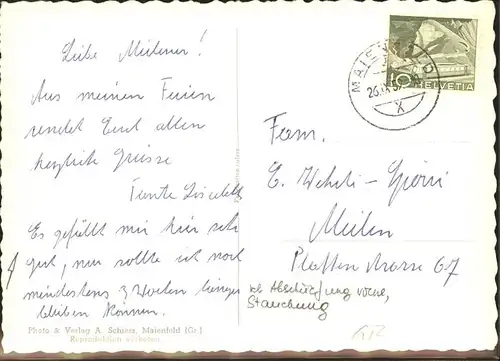 Liebe Meilener!
Aus meinen Ferien
sendet Euch allen
herzliche Grüsse
Tante Liselott
Es gefällt mir hier sehr
gut, nur sollte ich noch
mindestens 3 Wochen länger
bleiben können.
Photo & Verlag A. Schiess, Maienfeld (Gr.)
Reproduktion verboten
MAIENFELD
X
10
HELVETIA
Fam.
E. Wehrli-
Meilen
Plattenstrasse 67
Abschürfung vorne,
Stauchung